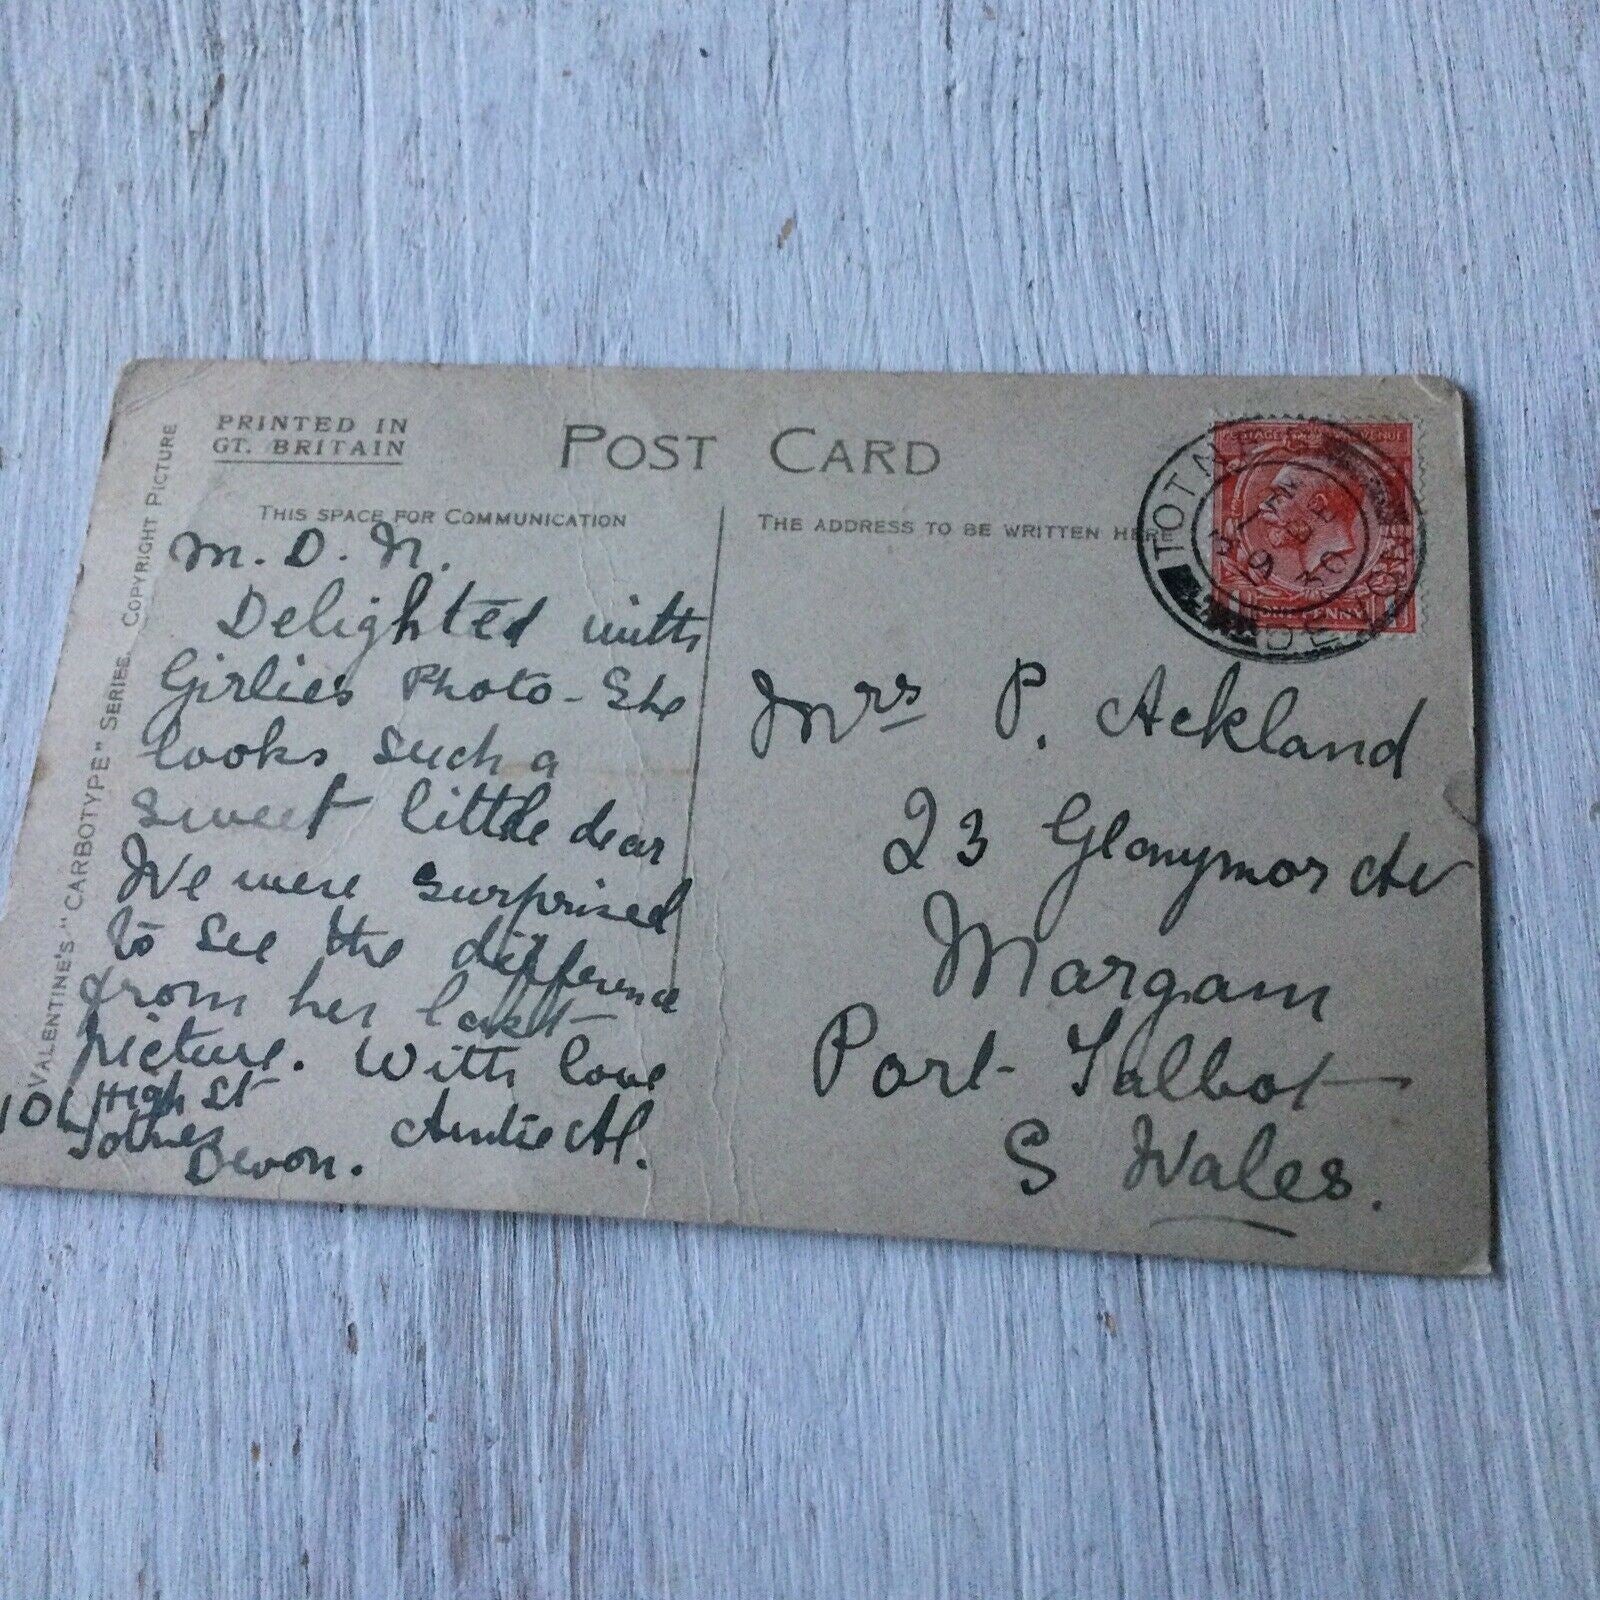 PRINTED IN
GT. BRITAIN
POST CARD
VALENTINE'S "CARBOTYPE" SERIES. COPYRIGHT PICTURE
THIS SPACE FOR COMMUNICATION
M. D. N.
Delighted with
Girlies Photo - She
looks such a
sweet little dear
We were surprised
to see the difference
from her last
picture. With love
Auntie Al.
High St
Totnes
Devon.
THE ADDRESS TO BE WRITTEN HERE
Mrs P. Ackland
23 Glanymor Av
Margam
Port Talbot
S Wales.
TOTNES
DEVON
19 30
ONE PENNY